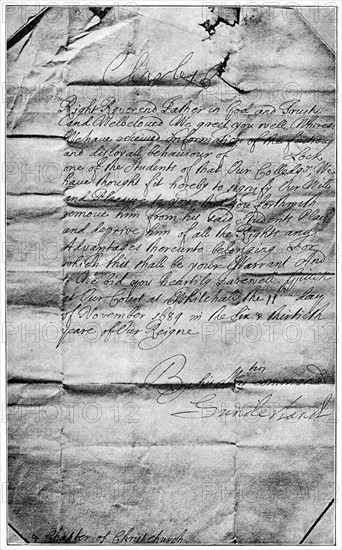 Charles R
Right Reverend Father in God and Trusty
and Welbeloved We greet you well. Whereas
We have received Information of the factious
and disloyall behaviour of Lock
one of the Students of that Our Colledge We
have thought fit hereby to signify Our Will
and Pleasure to you that you forthwith
remove him from his said Students Place
and deprive him of all the Rights and
Advantages thereunto belonging For
which this shall be your Warrant And
So We bid you heartily farewell Given
at Our Court at Whitehall the 11th day
of November 1684 in the Six & thirtieth
yeare of Our Reigne
By his Ma ties Command
Sunderland
& Chapter of Christchurch.